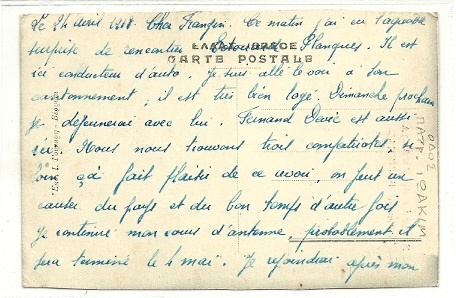 Le 24 Avril 1918. Cher François. Ce matin j'ai eu l'agréable
surprise de rencontrer Planques. Il est
CARTE POSTALE
ici conducteur d'auto. Je suis allé le voir à son
cantonnement, il est très bien logé. Dimanche prochain
je déjeunerai avec lui. Fernand Devic est aussi
ici. Nous nous trouvons trois compatriotes si
loin ça fait plaisir de se avoir, on peut un
causer du pays et du bon temps d'autre fois
Je continue mon cours d'antenne, probablement il
sera terminé le 6 mai. Je rejoindrai après mon
ΟΔΟΣ
ΠΑΤΡ. ΙΩΑΚΙΜ